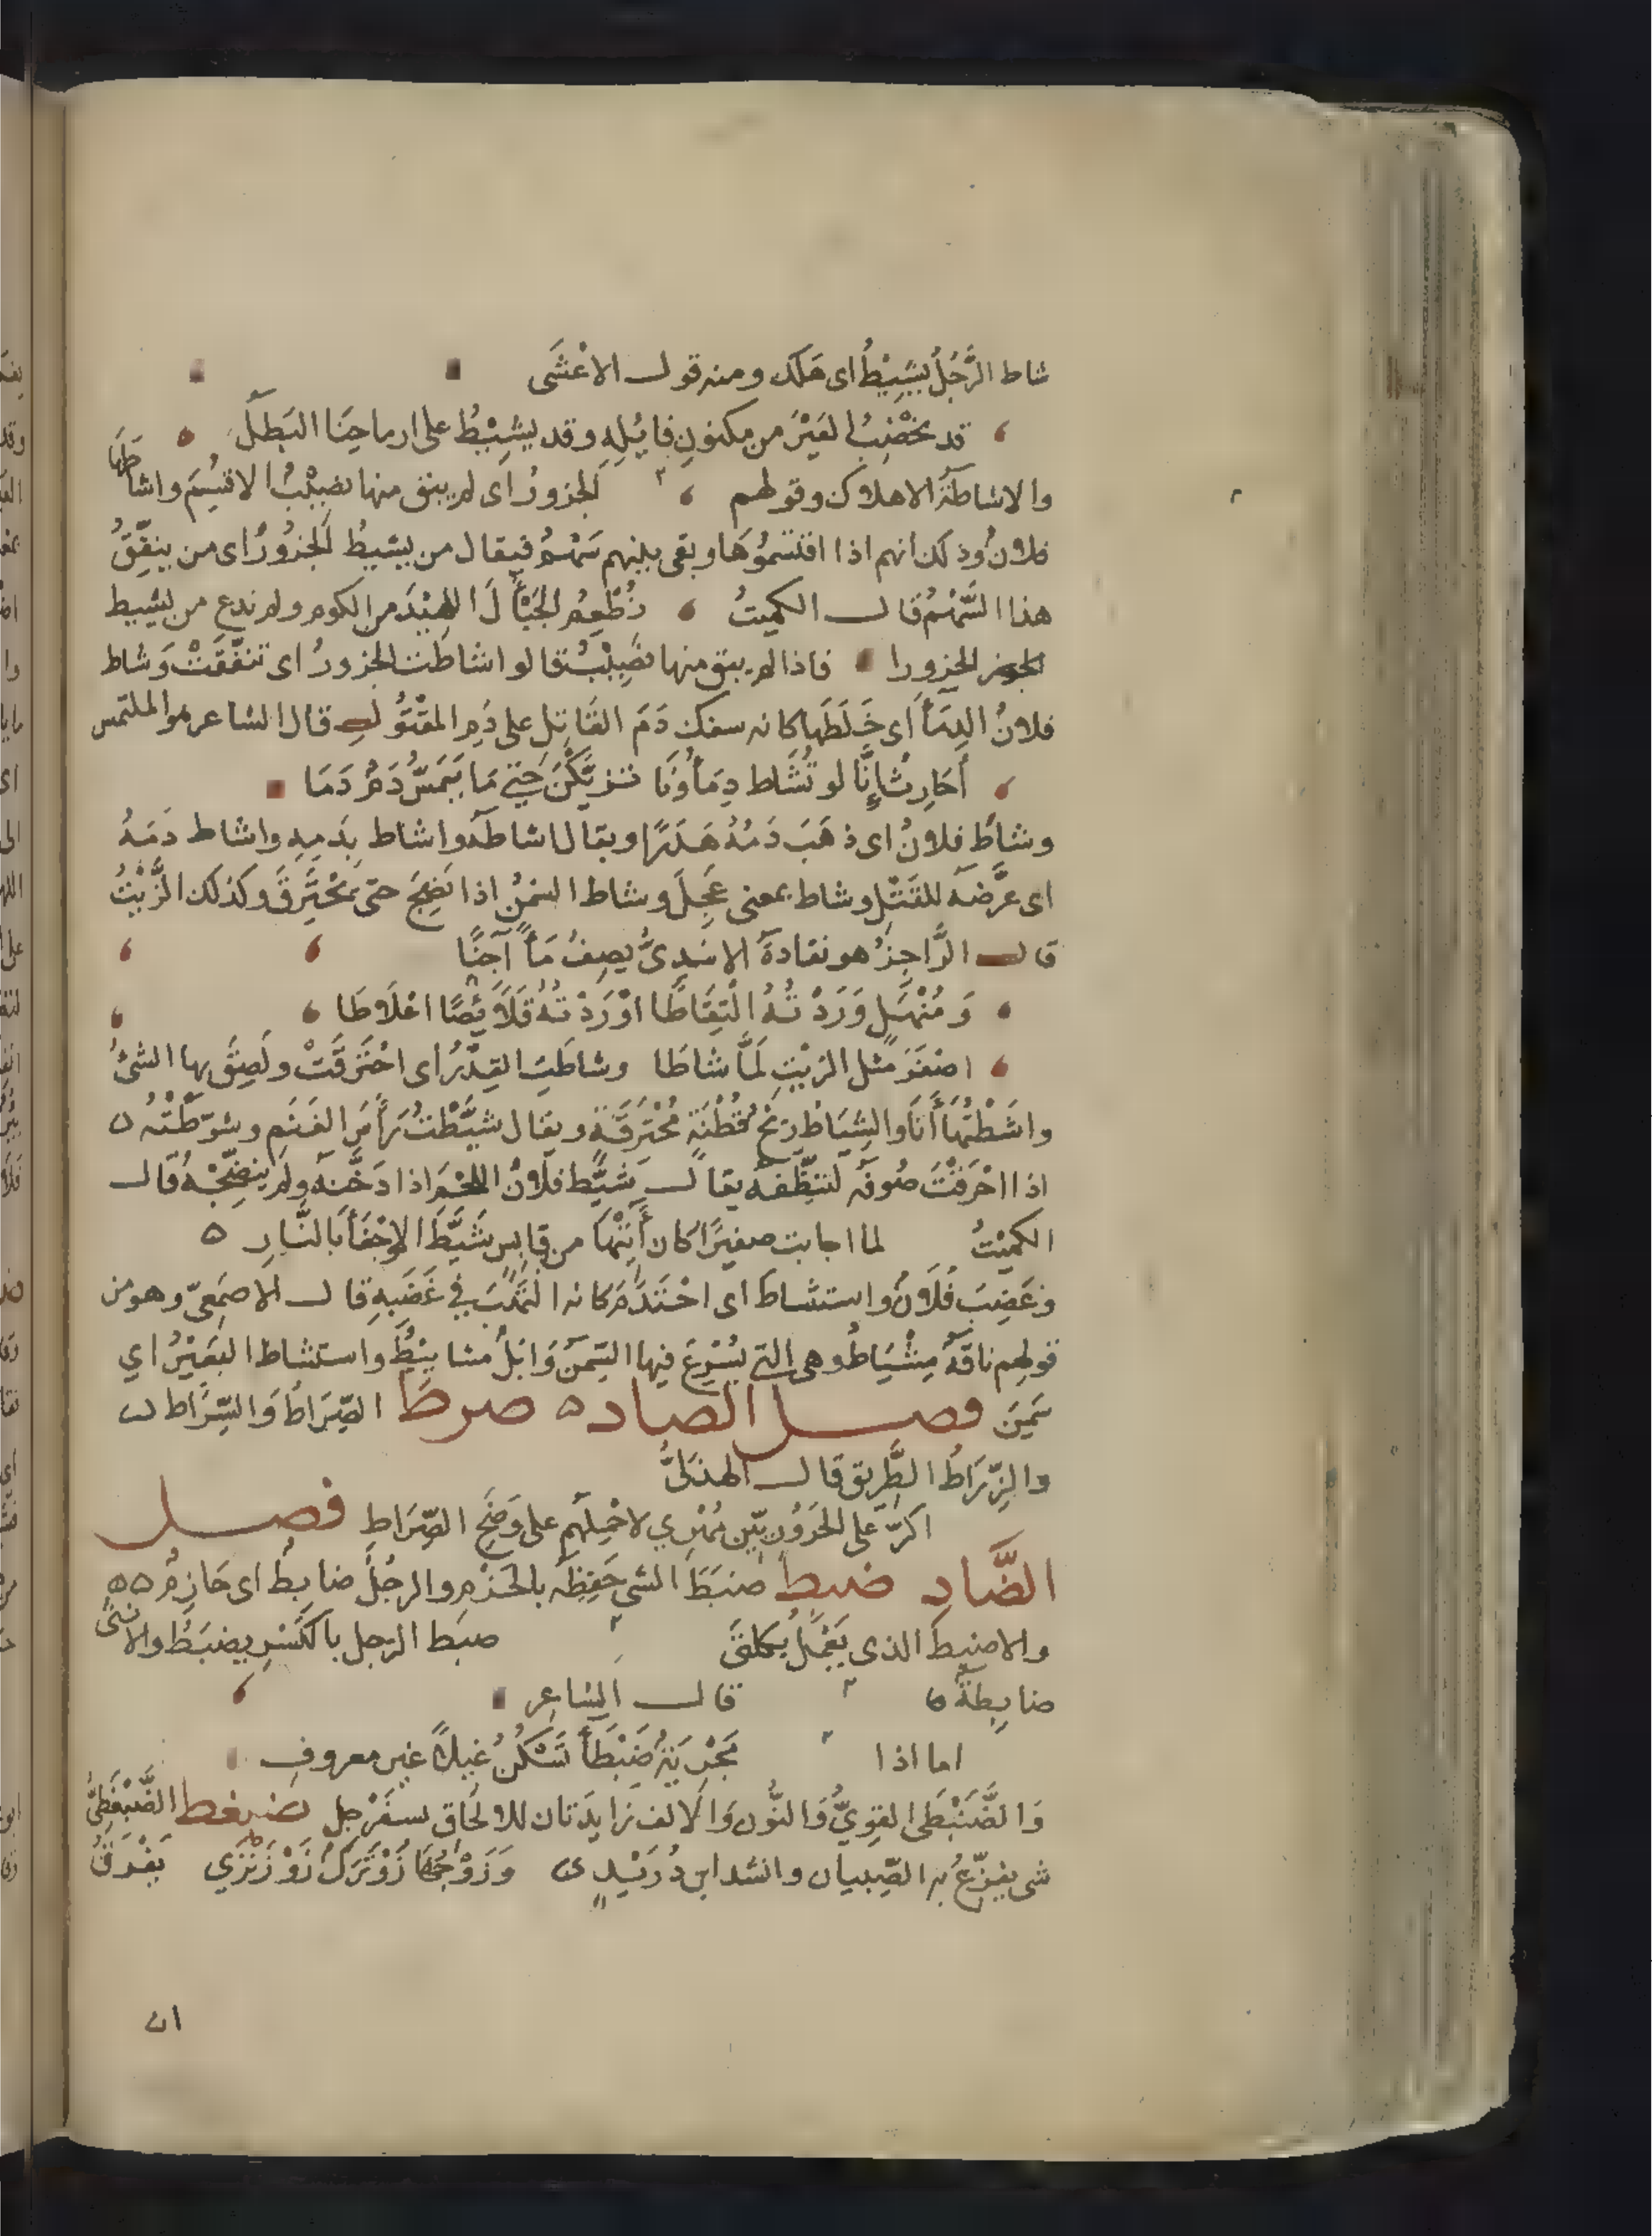 شاط الرَّجُلُ يَشِيْطُ اى هَلَكَ ومنه قول الاعْشَى
قد نخْضِبُ العَيْرَ من مكنونِ فايُلِهِ وقد يشِيْطُ على ارماحِنَا البَطلُ
والاشاطَةُ الاهلاك وقولهم الجزورُ اى لم يبق منها نصِيْبٌ الا قُسِمَ واشاطها
فلانٌ وذلك انهم اذا اقتسمُوْهَا وبقى بينهم سَهْمٌ فيقال من يشيطُ الجزُورَ اى من ينفِّقُ
هذا السَّهْمَ قال الكميتُ نُطْعِمُ الجَيْأَلَ اللهِيْدَ من الكوم ولم ندع من يشيط
الجزورا فاذا لم يبق منها نصِيْبٌ قالوا اشاطَت الجزورُ اى تنفّقَتْ وشاط
فلانٌ الدِمَأَ اى خَلَطَها كانه سفك دَمَ القَاتِل على دَمِ المقْتُوْلِ قال الشاعر هو الملتمس
أَحَارِثُ إِنَّا لو تُشَاط دِمَأُونَا تزيَّلْنَ حَتى مَا يَمَسُّ دَمٌ دَمَا
وشاطَ فلانٌ اى ذهَبَ دَمُهُ هَدَرًا ويقال اشاطَهُ واشاط بِدَمِهِ واشاط دَمَهُ
اى عرَّضَهُ للقَتْلِ وشاط بمعنى عَجِلَ وشاط السَمْنُ اذا نَضِجَ حتى يَحْتَرِقَ وكذلك الزَّيْتُ
قال الرَّاجِزُ هو نقادَةُ الاسَدِىُّ يصِفُ مَأً آجِنًا
وَمُنْهَلٍ وَرَدْتُهُ الْتِقَاطَا اوْرَدْتُهُ قَلَايِصًا اعْلَاطَا
اصْفَرَ مثل الزيْتِ لمَّا شاطَا وشاطَتِ القِدْرُ اى احْتَرقَتْ ولَصِقَ بها الشئُ
واشَطْتُهَا أَنَا والشِيَاطُ رِيْحُ قُطْنَةٍ مُحْتَرِقَةٍ ويقال شيَّطْتُ رَأسَ الغَنَمِ وشوّطْتُه
اذا احْرَقْتَ صُوفَه لتنظِّفَهُ يقال شَيَّطَ فلانٌ اللحْمَ اذا دَخَّنَهُ ولم ينضِّجْهُ قال
الكميْتُ لما اجابت صفيرًا كان أَيَتْهَا من قابِسٍ شَيَّطَ الوَجْعَأَ بالنَّارِ
وغَضِبَ فُلَانٌ واستشاط اى احْتَدَمَ كانه الْتَهَبَ فِي غَضَبِهِ قال الاصمَعِىّ وهو من
قولهم ناقَةٌ مِشْيَاطٌ وهى التي يُسْرِعُ فيها السِّمَنُ وَابِلٌ مشاييْطُ واستشاط البَعِيْرُ اي
سَمِنَ فصل الصاد ه صرط الصِّرَاطُ وَالسِّرَاطُ
والزِّرَاطُ الطَّرِيق قال الهذلىُّ
اكرّ على الحَرُوْرِييّن مُهْرِي لاحْمِلَهم على وَضَحِ الصِّرَاطِ فصل
الضَّادِ ضبط ضَبَطَ الشى حَفِظَهُ بالحَزْمِ والرجُلُ ضابِطٌ اى حَازِمٌ
والاضبط الذى يَعْمَلُ بِكلتَى ضبَط الرّجل بالكَسْرِ يضبَطُ والانثى
ضابِطةٌ قال الشاعِر
اما اذا مَجْرِيَةٌ ضَبْطَأُ تَسْكُنُ غِيلاً غير معروفِ
وَالضَّبَنْطَى القوِيُّ وَالنُّون وَالالف زايدَتان للالحَاق بسفَرْجل ضبغط الضَّبَغْطَىُ
شى يفزّعُ به الصِّبيان وانشد ابن دُرَيْدٍ وَزَوْجُهَا زَوَنْزَكٌ زَوَنْزَي يَفْرَقُ
ان